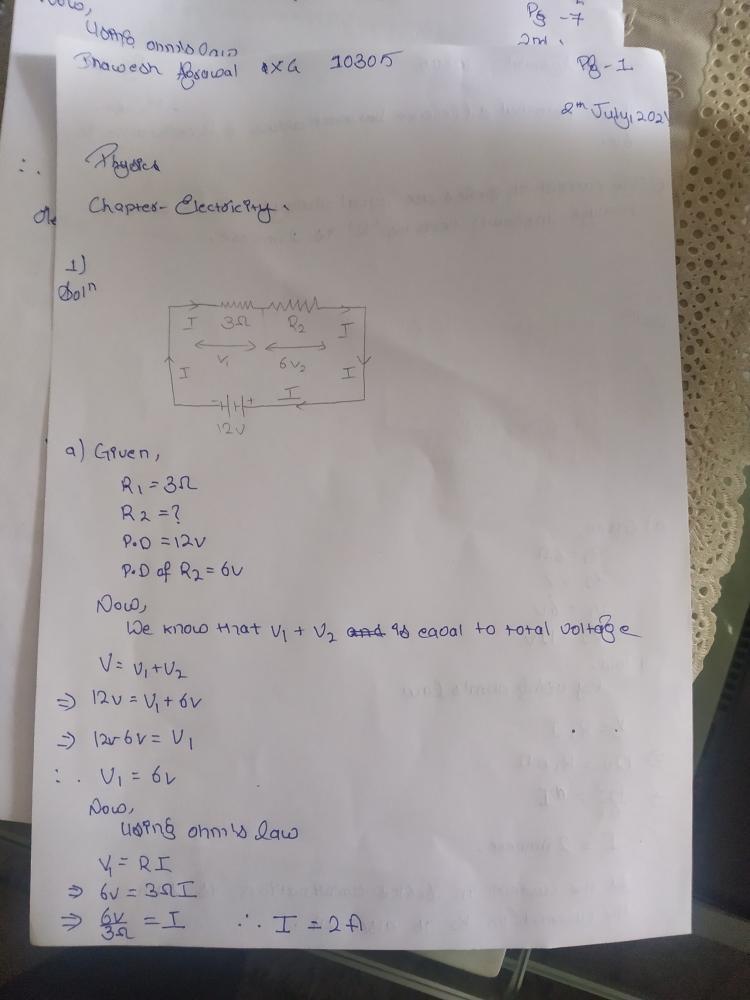 Now,
Pg - 7
using ohm's law
2nd
Bhawesh Agrawal 9XG 10305 Pg - 1
2nd July, 2021
Physics
Chapter- Electricity.
1)
Solⁿ
I 3Ω R2 I
V1 6V2
I I
I
- +
12V
a) Given,
R1 = 3Ω
R2 = ?
P.D = 12V
P.D of R2 = 6V
Now,
We know that V1 + V2 and is eaual to total voltage
V = V1 + V2
⇒ 12V = V1 + 6V
⇒ 12V-6V = V1
∴ V1 = 6V
Now,
Using ohm's law
V1 = RI
⇒ 6V = 3ΩI
⇒ 6V/3Ω = I ∴ I = 2A